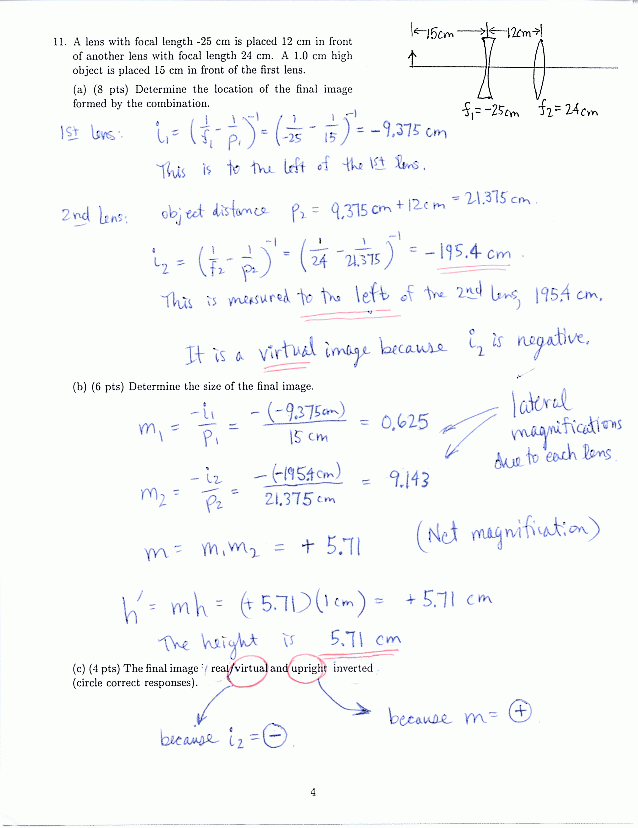 11. A lens with focal length -25 cm is placed 12 cm in front
of another lens with focal length 24 cm. A 1.0 cm high
object is placed 15 cm in front of the first lens.
|←15cm→|←12cm→|
f₁=-25cm f₂=24cm
(a) (8 pts) Determine the location of the final image
formed by the combination.
1st Lens: i₁ = (1/f₁ - 1/p₁)⁻¹ = (1/-25 - 1/15)⁻¹ = -9.375 cm
This is to the left of the 1st lens.
2nd Lens: object distance p₂ = 9.375cm + 12cm = 21.375 cm.
i₂ = (1/f₂ - 1/p₂)⁻¹ = (1/24 - 1/21.375)⁻¹ = -195.4 cm.
This is measured to the left of the 2nd lens, 195.4 cm.
It is a virtual image because i₂ is negative.
(b) (6 pts) Determine the size of the final image.
m₁ = -i₁/p₁ = -(-9.375cm)/15 cm = 0.625
lateral
magnifications
due to each lens.
m₂ = -i₂/p₂ = -(-195.4cm)/21.375cm = 9.143
m = m₁m₂ = + 5.71 (Net magnification)
h' = mh = (+5.71)(1cm) = +5.71 cm
The height is 5.71 cm
(c) (4 pts) The final image : real/virtual and upright inverted
(circle correct responses).
because i₂ = ⊖
because m = ⊕
4